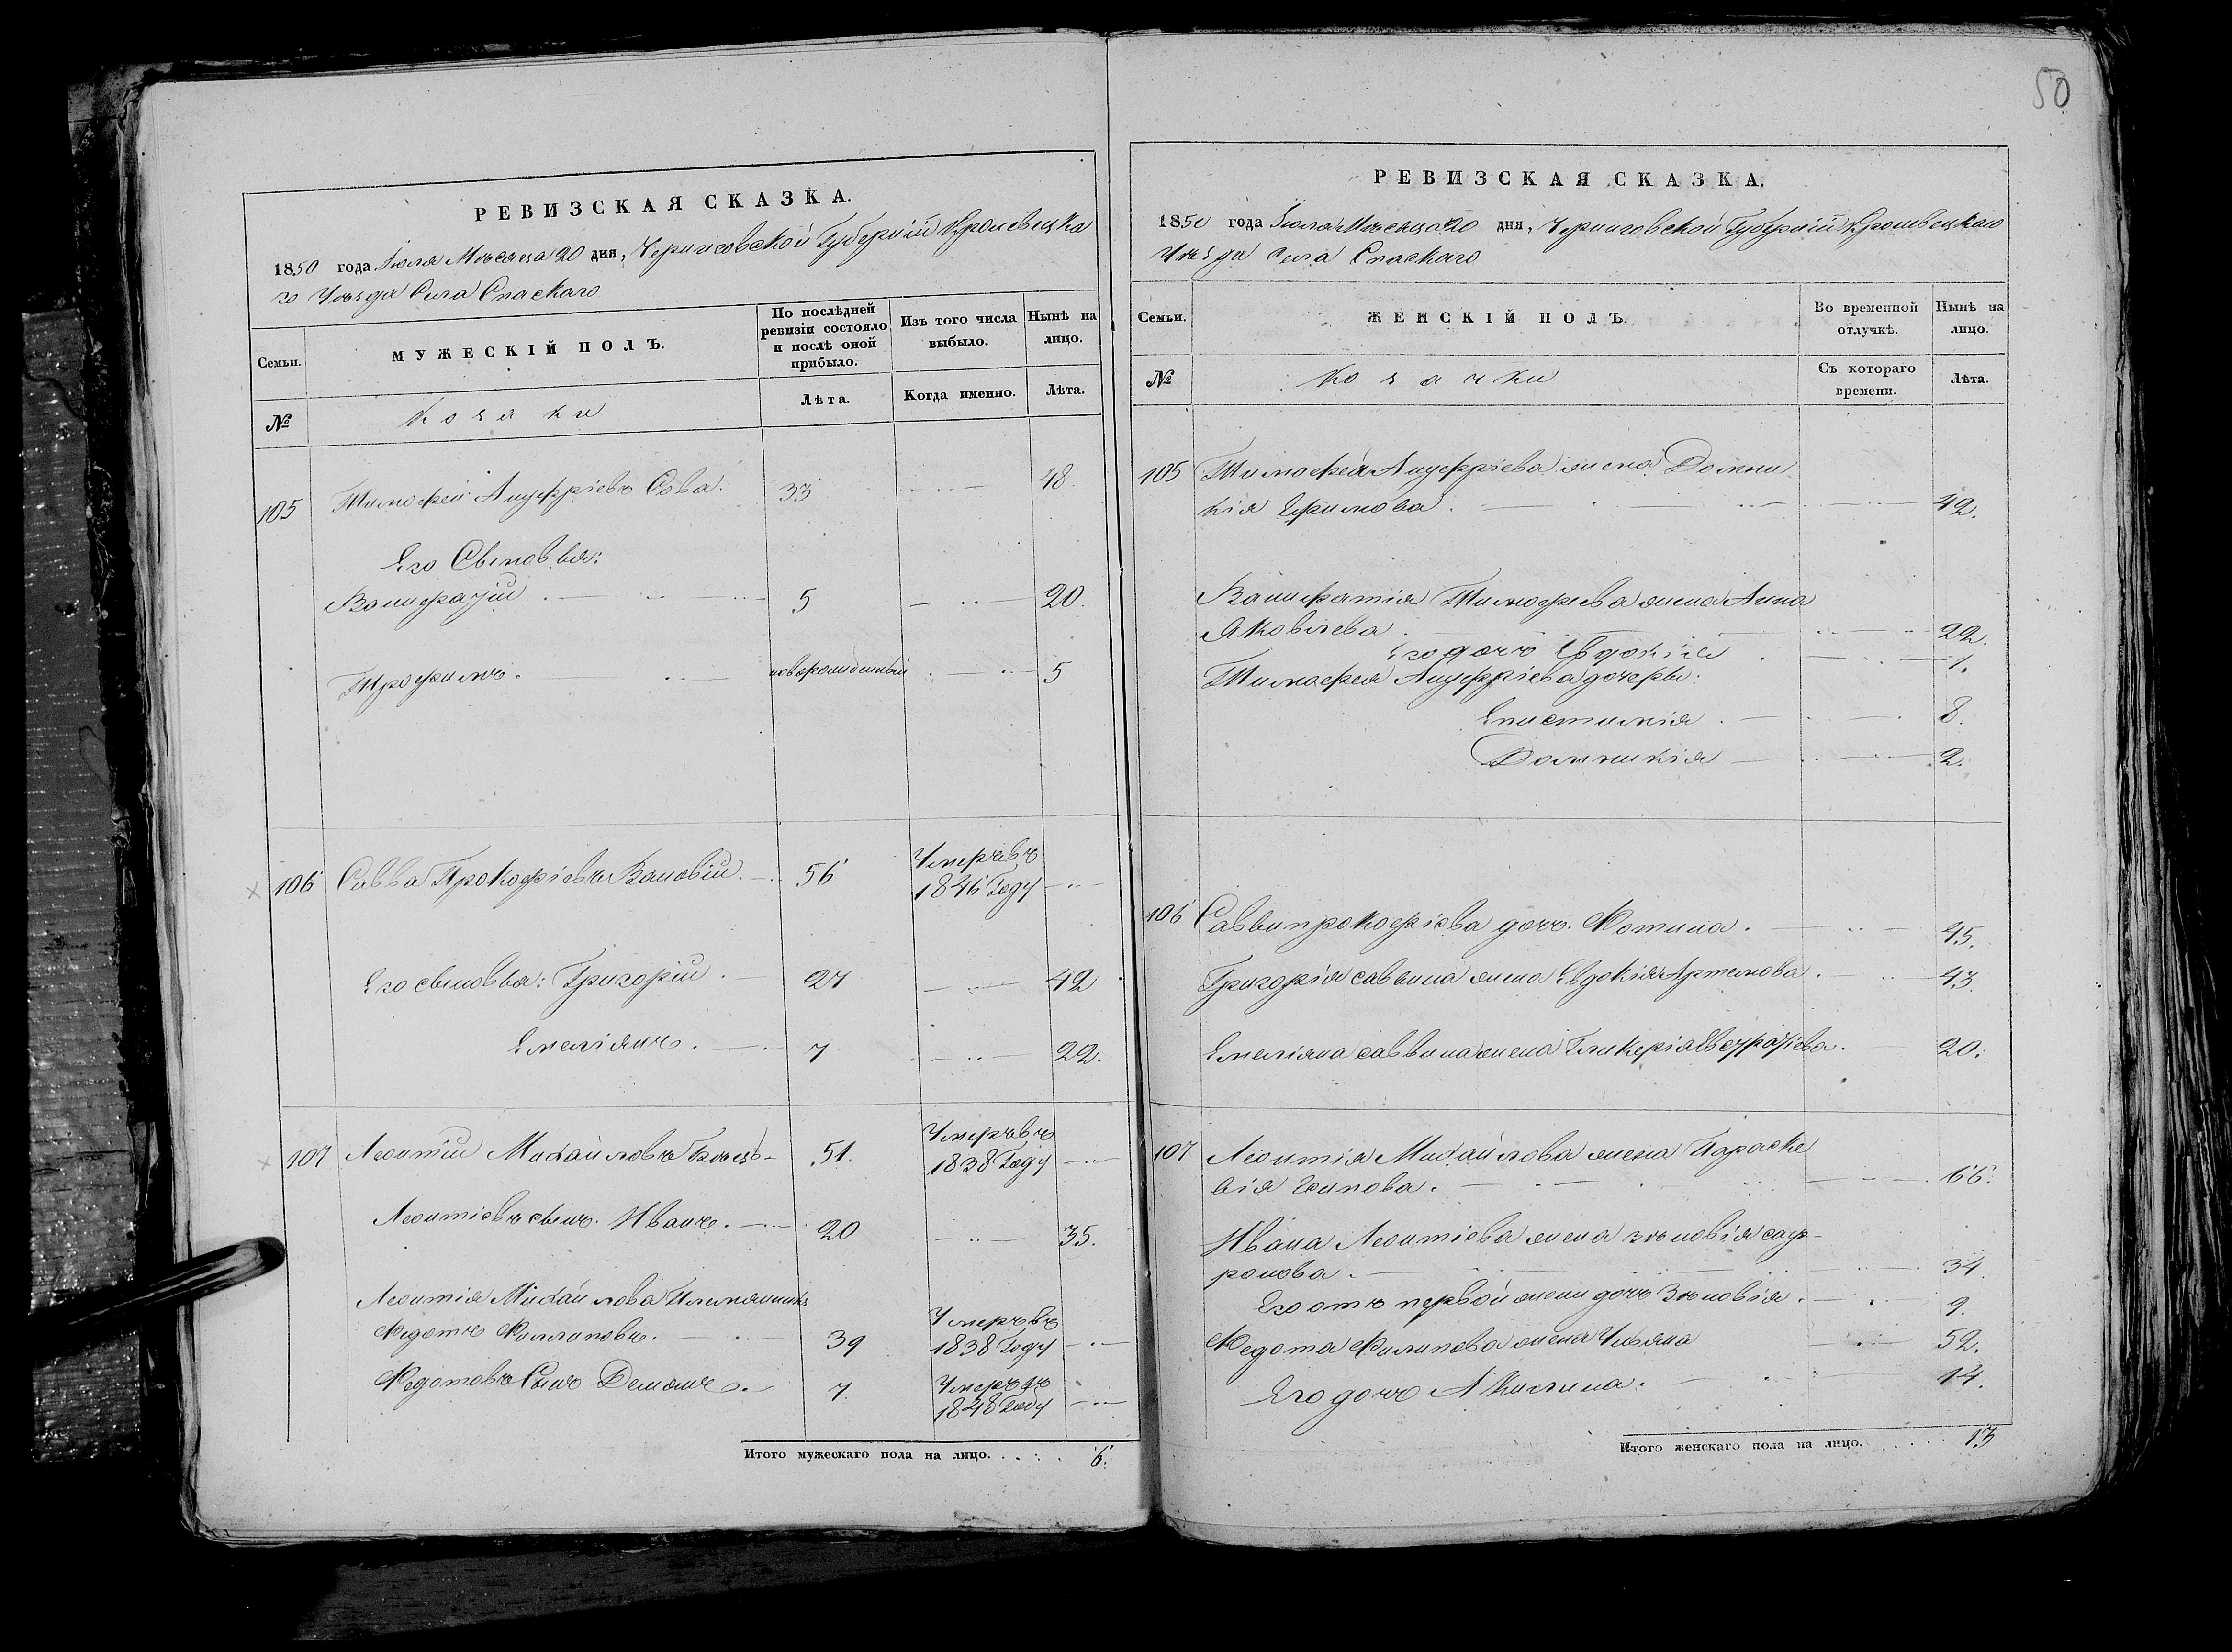 50
РЕВИЗСКАЯ СКАЗКА.
1850 года Іюля Мѣсяца 20 дня, Черниговской Губерніи Кролевецка
го Уѣзда Села Спаскаго
Семьи.
МУЖЕСКІЙ ПОЛЪ.
По послѣдней ревизіи состояло и послѣ оной прибыло.
Изъ того числа выбыло.
Нынѣ на лицо.
№
Козаки
Лѣта.
Когда именно.
Лѣта.
105 Тимофей Ануфріевъ Сова. 33 48.
Его Сыновья:
Вонифатій 5 20.
Трофимъ. новорожденный 5
106 Савва Прокофіевъ 56 Умеръ въ
1846 Году
Его сыновья: Григорій 27 42
Емеліянъ. 7 22.
107 Леонтій Михайловъ 51. Умеръ въ
1838 Году
Леонтіевъ сынъ Иванъ. 20 35.
Леонтія Михайлова Племянникъ
Федотъ Филиповъ. 39 Умеръ въ
1838 Году
Федотовъ Сынъ Демянъ 7. Умеръ въ
1848 Году
Итого мужескаго пола на лицо. 6.
РЕВИЗСКАЯ СКАЗКА.
1850 года Іюля Мѣсяца 20 дня, Черниговской Губерніи Кролевецкаго
Уѣзда Села Спаскаго
Семьи.
ЖЕНСКІЙ ПОЛЪ.
Во временной отлучкѣ.
Нынѣ на лицо.
№
Козачки
Съ котораго времени.
Лѣта.
105 Тимофея Ануфріева жена Домни
кія Ефимова. 42.
Вонифатія Тимофіева жена Анна
Яковлева 22.
Его дочь Евдокія 1.
Тимофея Ануфріева дочери:
Епистимія 8.
Домникія 2.
106 Саввы прокофіева дочь Фотина. 45.
Григорія саввина жена Евдокія Артемова. 43.
Емеліяна саввина жена Гликерія 20.
107 Леонтія Михайлова жена Параске
вія Есипова. 66.
Ивана Леонтіева жена зѣновія соф-
ронова. 34.
Его отъ первой жены дочь Зѣновія. 9.
Федота Филипова жена Ульяна 52.
Его дочь Акилина. 14.
Итого женскаго пола на лицо. 13